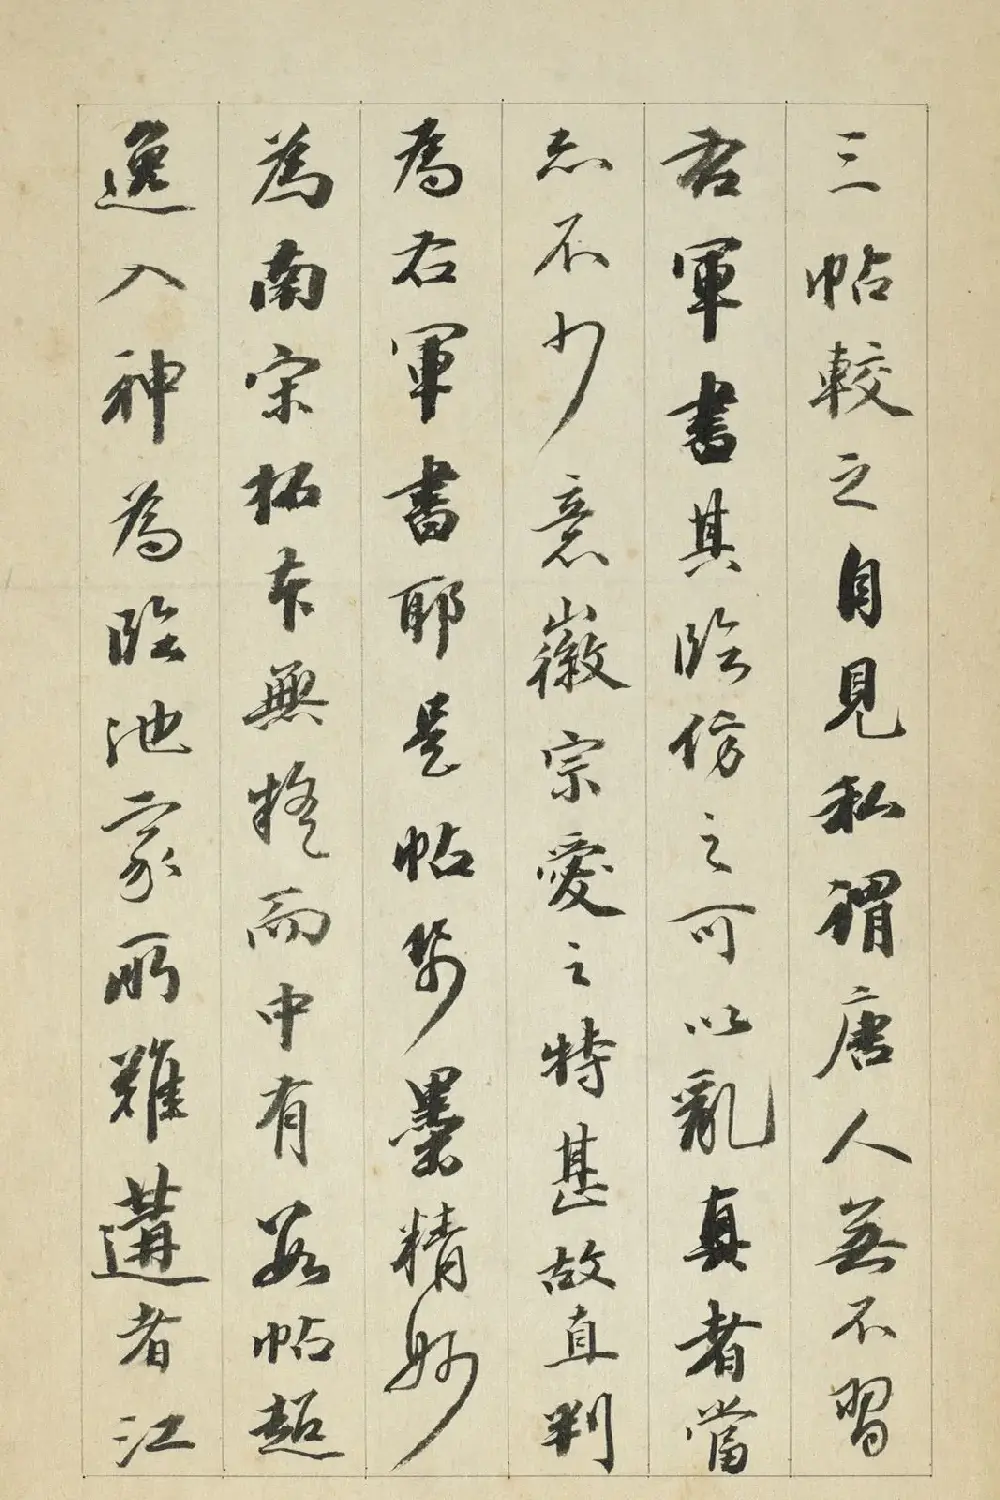 三帖較之自見私謂唐人無不習
右軍書其臨仿之可以亂真者當
亦不少意徽宗愛之特甚故直判
為右軍書耶是帖紙墨精妙
為南宋拓本無疑而中有數帖超
逸入神為臨池家所難遘者江